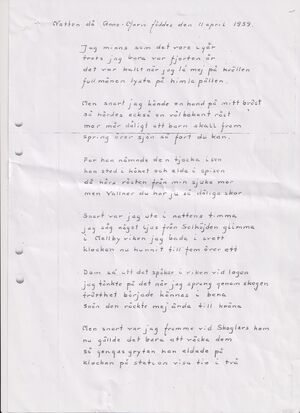 Natten då Anne-Marie föddes den 11 april 1959.
Jag minns som det vore igår
trots jag bara var fjorton år
det var kallt när jag la mej på kvällen
fullmånen lyste på himlapällen.
Men snart jag kände en hand på mitt bröst
så hördes också en välbekant röst
mor mår dåligt att barn skall fram
spring över sjön så fort du kan.
Far han nämnde den tjocka isen
han sted i köket och elda i spisen
då hörs rösten från min sjuka mor
men Vallner du har ju så dåliga skor
Snart var jag ute i nattens timma
jag såg något ljus från Solhöjden glimma
i Mellbyviken jag bada i svett
klockan nu hunnit till fem över ett
Dom sa att det spökar i viken vid logen
jag tänkte på det när jag sprang genom skogen
trötthet började kännas i bena
snön den räckte mej ända till knäna
Men snart var jag framme vid Skoglars hem
nu gällde det bara att väcka dem
så gengasgrytan han eldade på
klockan på station visa tio i två